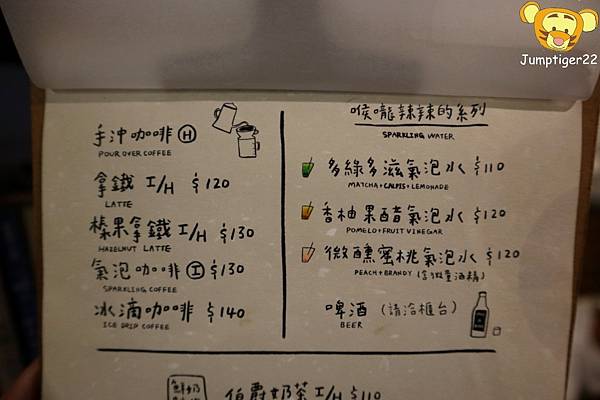 Jumptiger22
手沖咖啡 Ⓗ
POUR OVER COFFEE
拿鐵 I/H $120
LATTE
榛果拿鐵 I/H $130
HAZELNUT LATTE
氣泡咖啡 Ⓘ $130
SPARKLING COFFEE
冰滴咖啡 $140
ICE DRIP COFFEE
喉嚨辣辣的系列
SPARKLING WATER
多綠多滋氣泡水 $110
MATCHA+CALPIS+LEMONADE
香柚果醋氣泡水 $120
POMELO+FRUIT VINEGAR
微醺蜜桃氣泡水 $120
PEACH+BRANDY (含微量酒精)
啤酒 (請洽櫃台)
BEER
鮮奶
伯爵奶茶 I/H $110